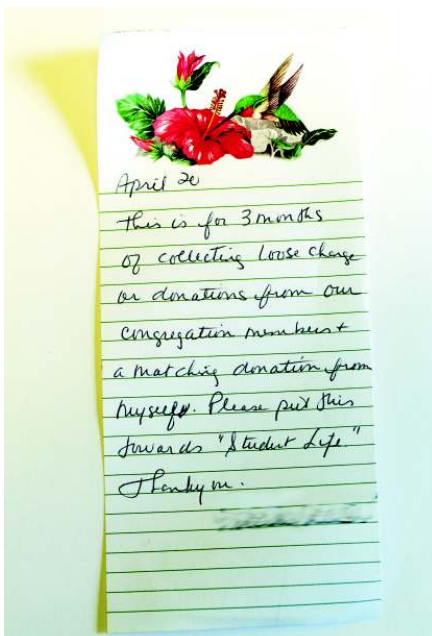 April 20
This is for 3 months
of collecting loose change
or donations from our
congregation members +
a matching donation from
myself. Please put this
towards "Student Life."
Thank you.